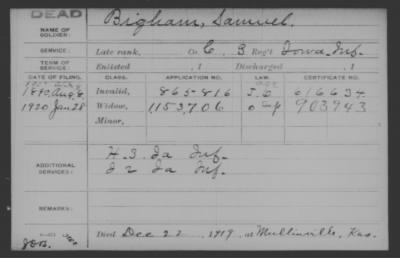 DEAD
NAME OF SOLDIER: Bigham, Samuel.
SERVICE: Late rank, Co. C, 3 Reg't Iowa Inf.
TERM OF SERVICE: Enlisted , 1 Discharged , 1
DATE OF FILING. CLASS. APPLICATION NO. LAW. CERTIFICATE NO.
1890, Aug 8 Invalid, 865-816 616634
1920 Jan 28 Widow, 1,153,706 903943
Minor,
ADDITIONAL SERVICES: H. 3. Ia Inf.
I 2 Ia Inf.
REMARKS:
Died Dec 22, 1919, at Mullinville, Kas.